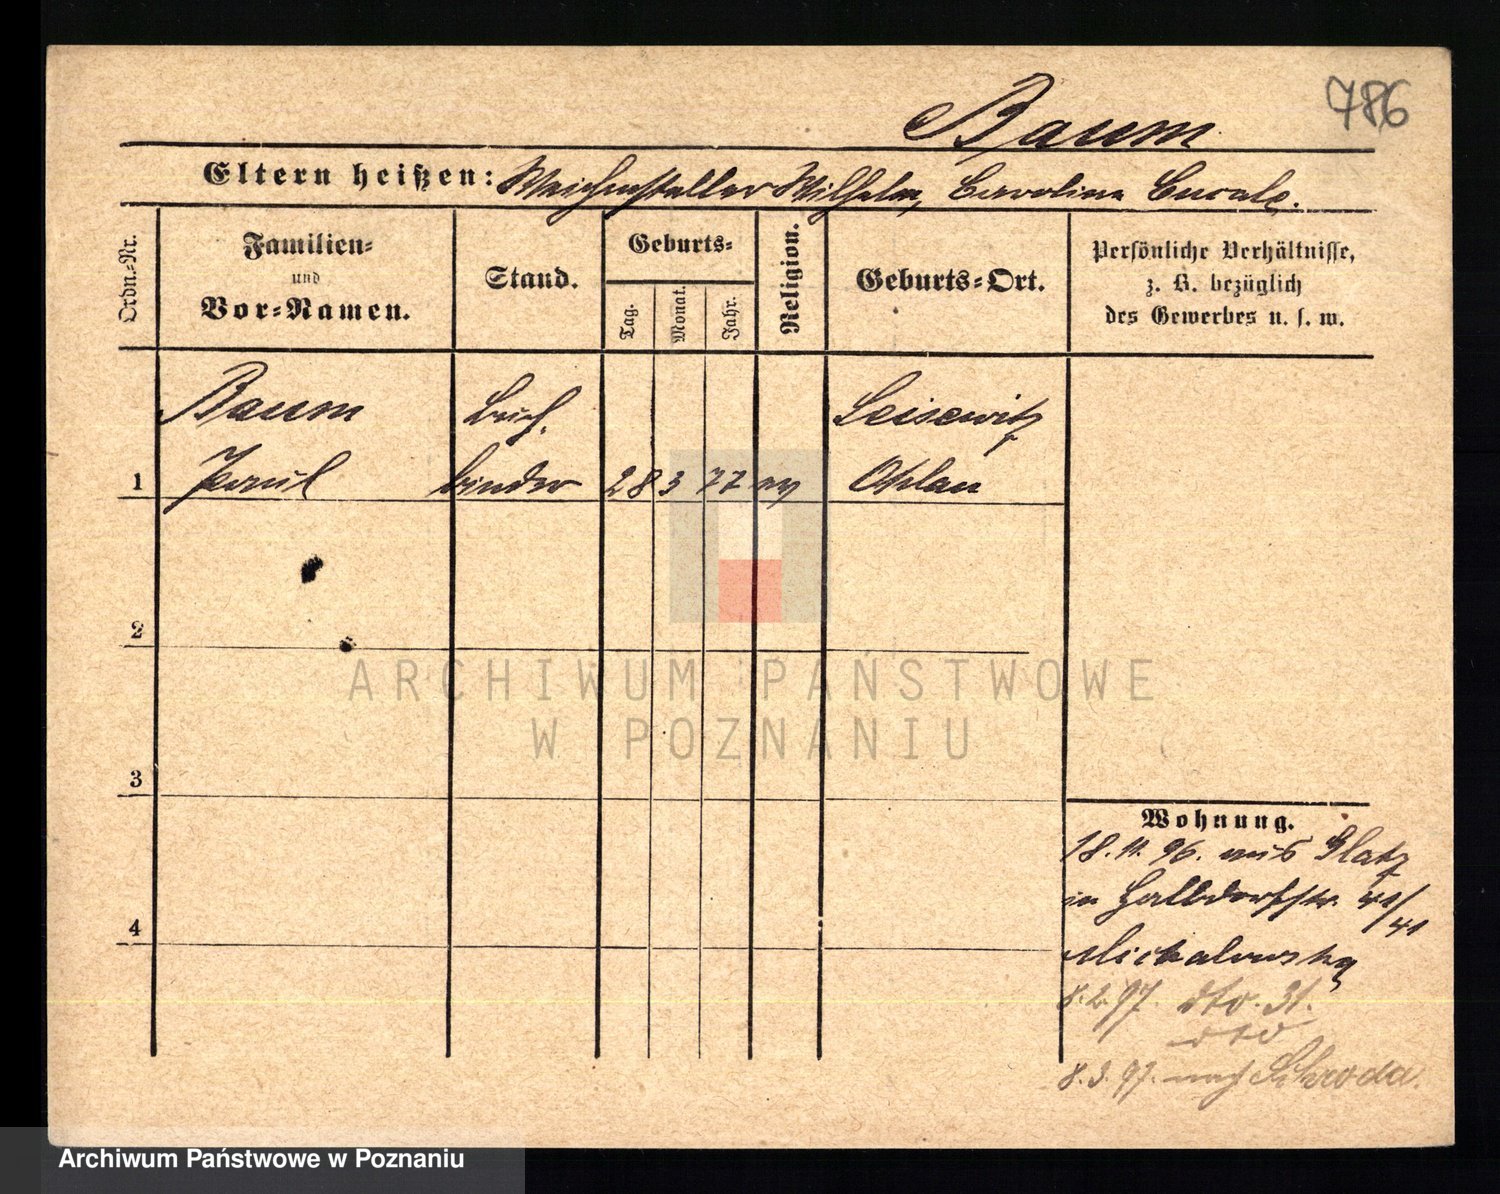 786
Baum
Eltern heißen: Weichensteller Wilhelm, Carolina
Ordn.-Nr.
Familien-
und
Vor-Namen.
Stand.
Geburts-
Tag.
Monat.
Jahr.
Religion.
Geburts-Ort.
Persönliche Verhältnisse,
z. B. bezüglich
des Gewerbes u. s. w.
Baum Buch- Leisewitz
1 Paul binder 28 3 77 ev Ohlau
2
3
4
Wohnung.
18.11.96. aus Glatz
in Halbdorfstr.
8.2.97. dto. 31.
dto
8.3.97. nach Schroda.
ARCHIWUM PAŃSTWOWE
W POZNANIU
Archiwum Państwowe w Poznaniu